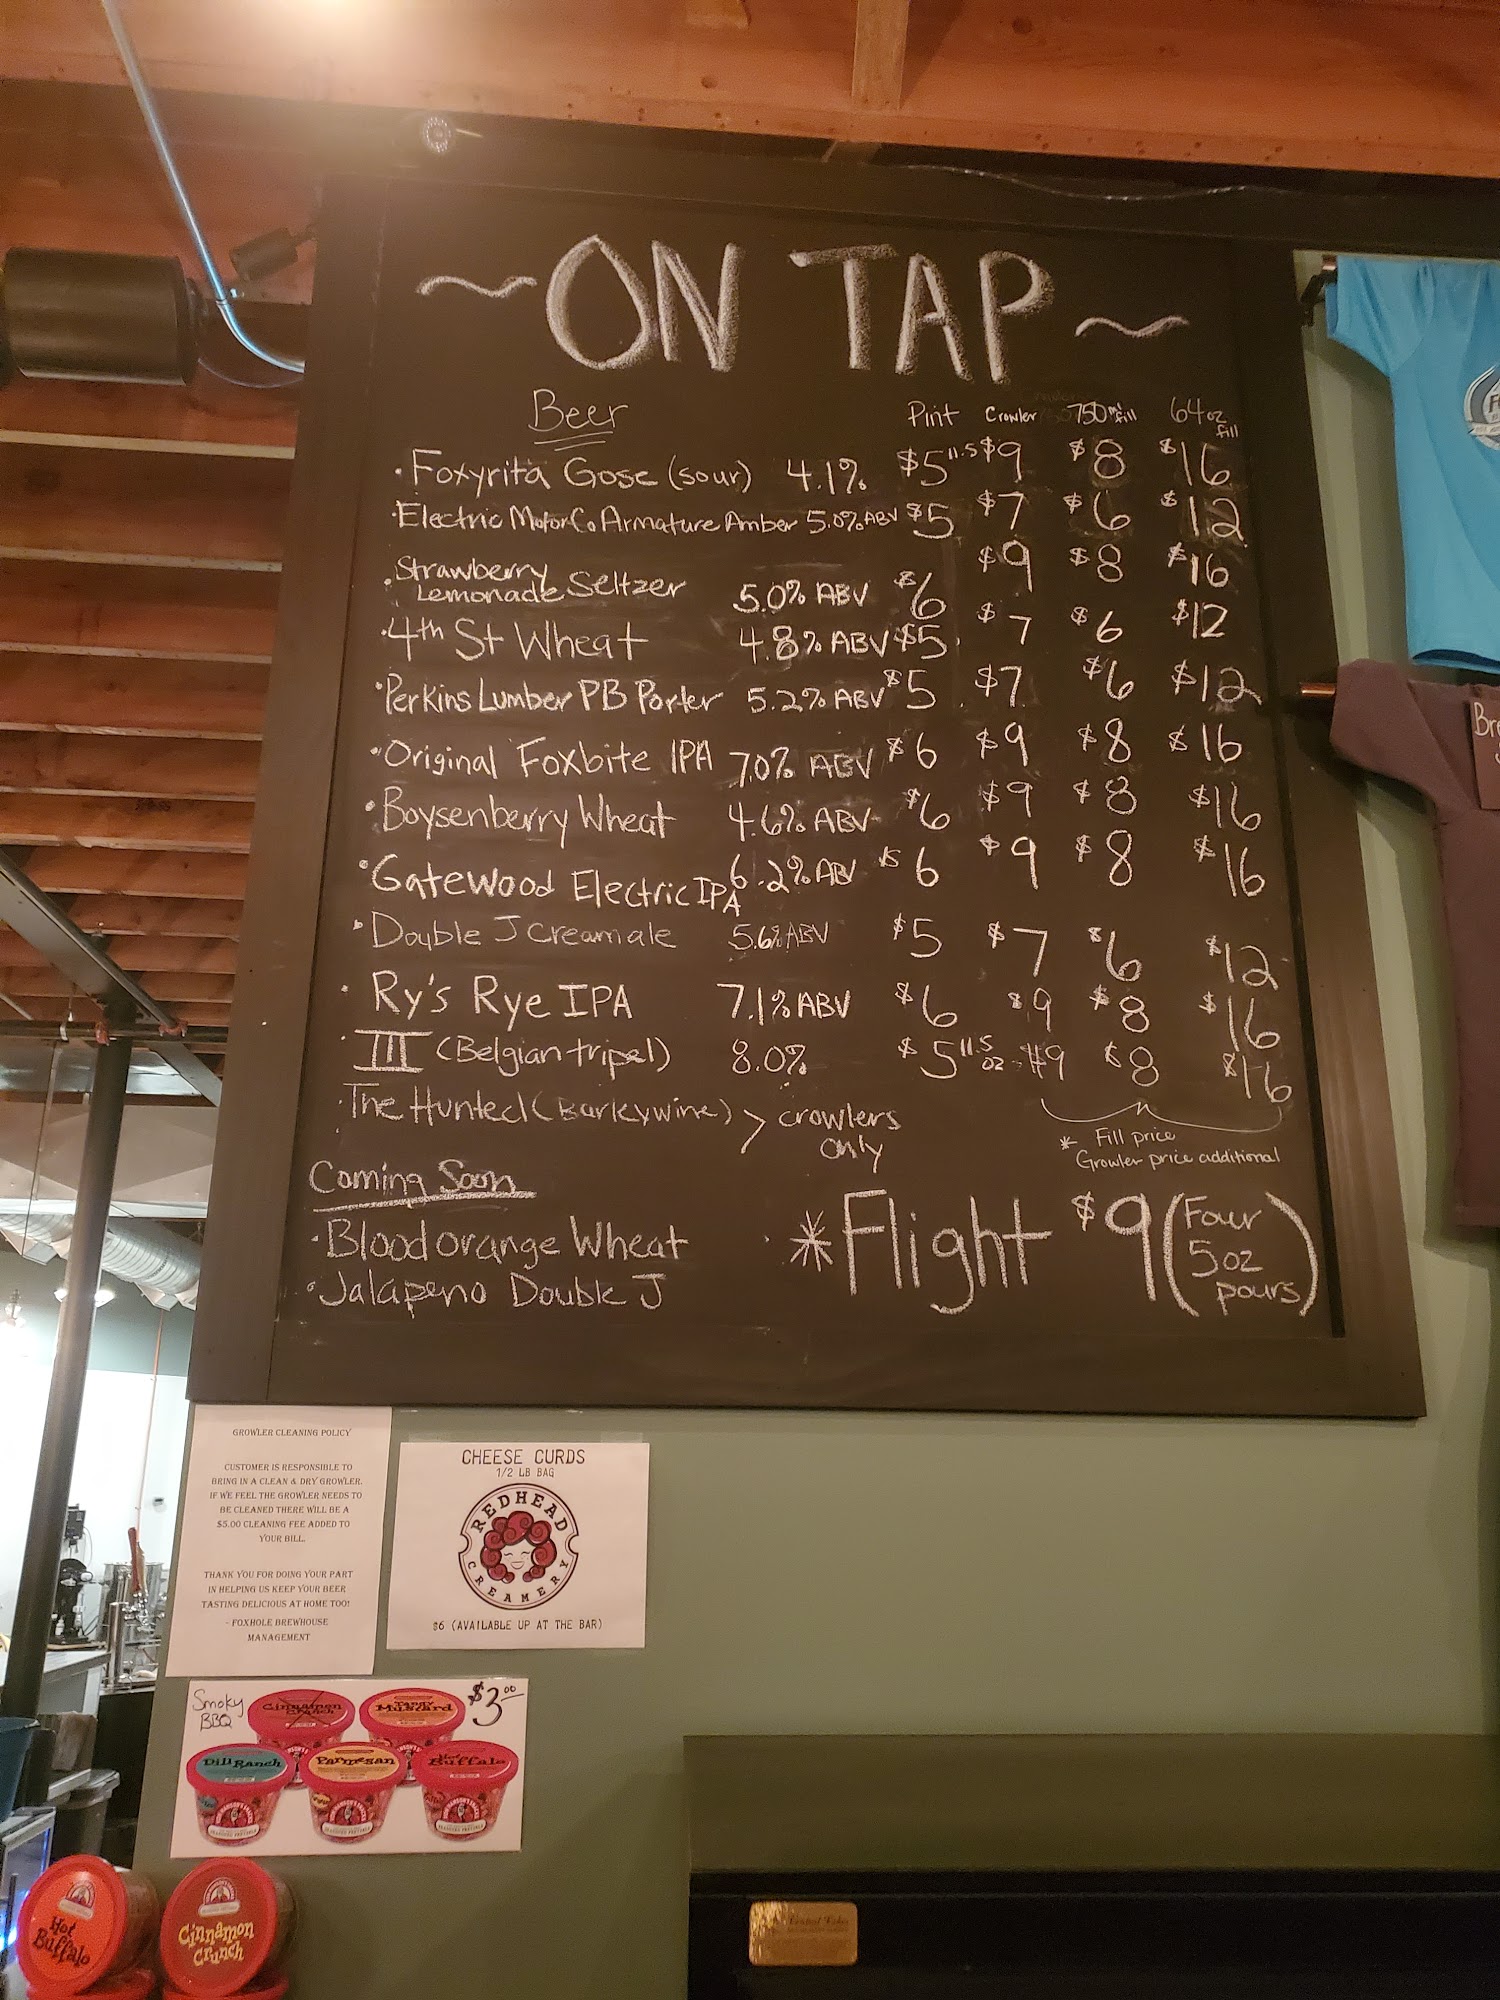 ~ON TAP~
Beer Pint Crowler 750 ml fill 64 oz fill
· Foxyrita Gose (sour) 4.1% $5 11.5 $9 $8 $16
· Electric Motor Co Armature Amber 5.0% ABV $5 $7 $6 $12
· Strawberry Lemonade Seltzer 5.0% ABV $6 $9 $8 $16
· 4th St Wheat 4.8% ABV $5 $7 $6 $12
· Perkins Lumber PB Porter 5.2% ABV $5 $7 $6 $12
· Original Foxbite IPA 7.0% ABV $6 $9 $8 $16
· Boysenberry Wheat 4.6% ABV $6 $9 $8 $16
· Gatewood Electric IPA 6.2% ABV $6 $9 $8 $16
· Double J Creamale 5.6% ABV $5 $7 $6 $12
· Ry's Rye IPA 7.1% ABV $6 $9 $8 $16
· III (Belgian tripel) 8.0% $5 11.5 oz $9 $8 $16
· The Hunted (Barleywine) > crowlers only
* Fill price
Growler price additional
Coming Soon
· Blood orange Wheat
· Jalapeno Double J
*Flight $9 (Four 5oz pours)
GROWLER CLEANING POLICY
CUSTOMER IS RESPONSIBLE TO
BRING IN A CLEAN & DRY GROWLER.
IF WE FEEL THE GROWLER NEEDS TO
BE CLEANED THERE WILL BE A
$5.00 CLEANING FEE ADDED TO
YOUR BILL.
THANK YOU FOR DOING YOUR PART
IN HELPING US KEEP YOUR BEER
TASTING DELICIOUS AT HOME TOO!
- FOXHOLE BREWHOUSE
MANAGEMENT
CHEESE CURDS
1/2 LB BAG
REDHEAD
CREAMERY
$6 (AVAILABLE UP AT THE BAR)
Smoky
BBQ
Cinnamon
Crunch
Tangy
Mustard
$3.00
Dill Ranch
Parmesan
Hot
Buffalo
Hot
Buffalo
Cinnamon
Crunch
Bre